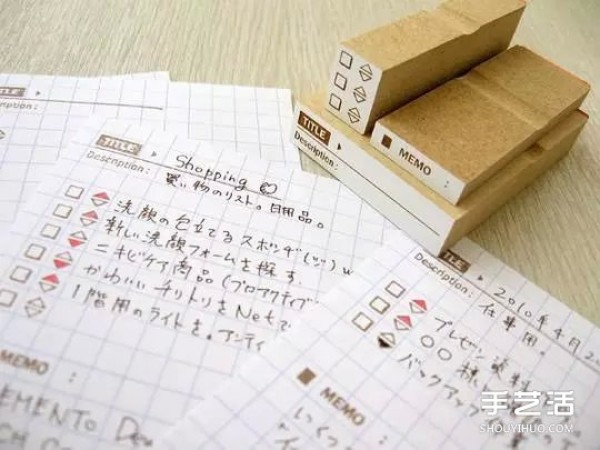 TITLE
Description:
MEMO :
TITLE
Description:
TITLE
Description:
Shopping
買い物のリスト。日用品。
洗顔の泡立てるスポンヂ(ツ)
新しい洗顔フォームを探す
ニキビケイ商品(プロアクティブ
かわいいチリトリをNetで
1階用のライトを。アンティ
MEMO :
TITLE
Description:
2010年4月
仕事用。
プレゼン資料
〇〇様
バックアップ
MEMO
いくつ
MEMENTO De
手艺活
SHOUYIHUO.COM